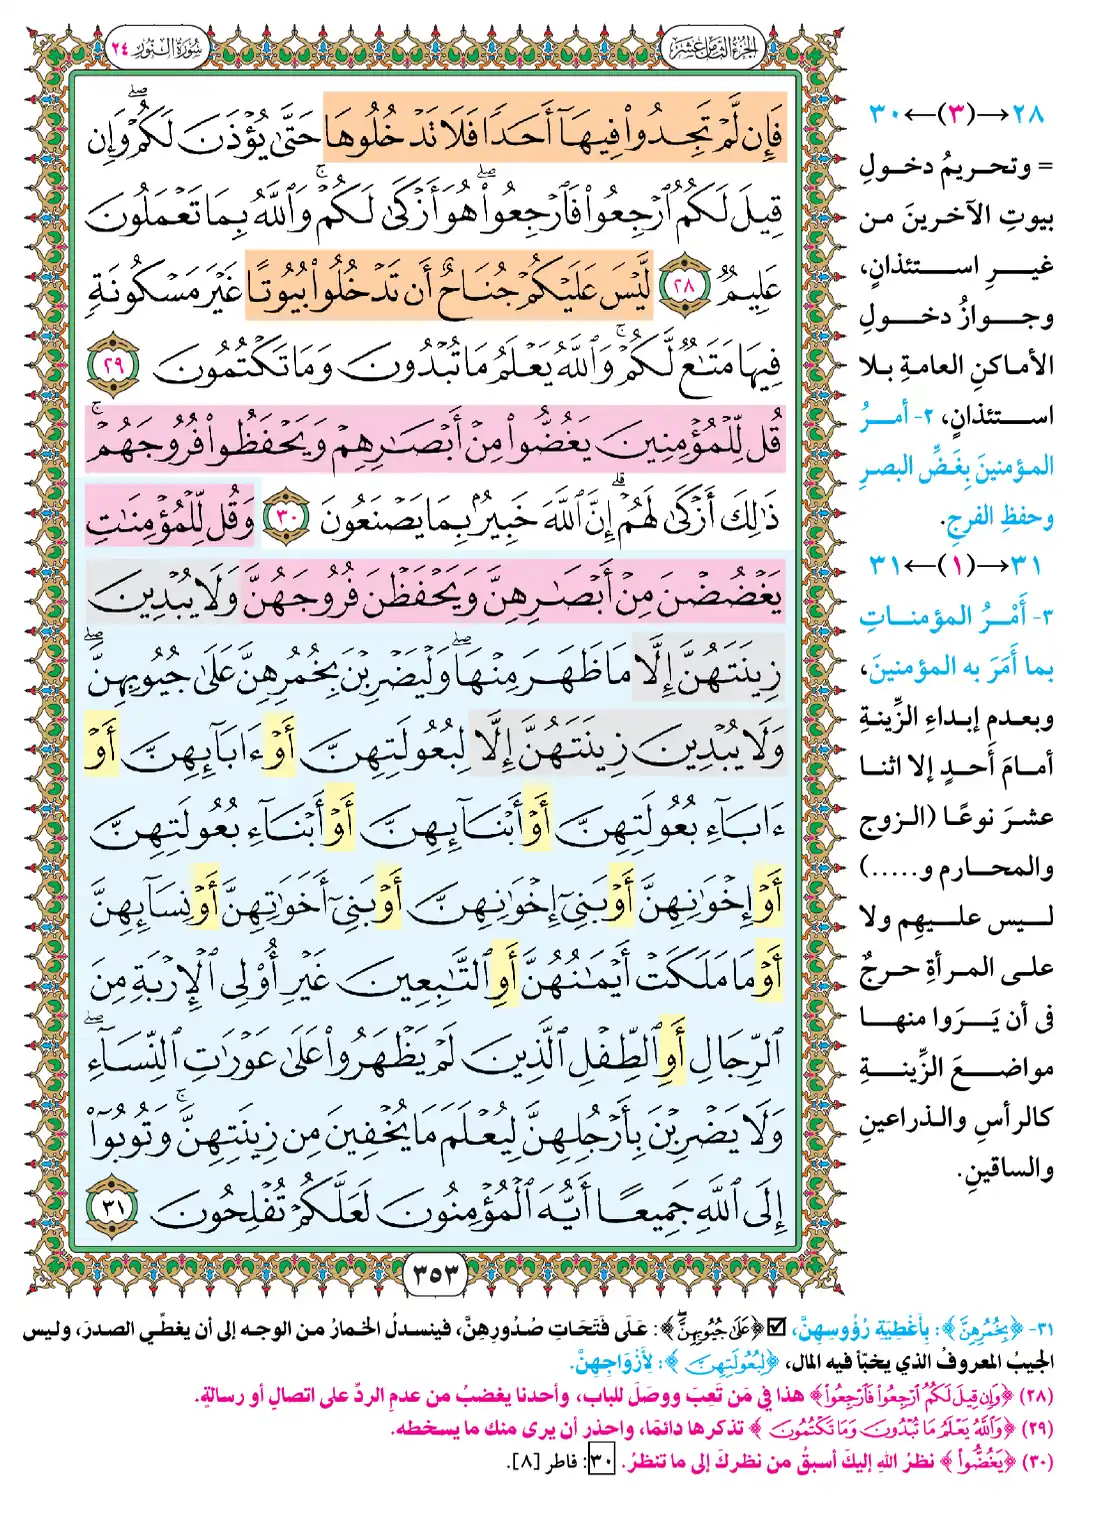 الجزء الثامن عشر
سورة النور ٢٤
فَإِن لَّمْ تَجِدُوا۟ فِيهَآ أَحَدًا فَلَا تَدْخُلُوهَا حَتَّىٰ يُؤْذَنَ لَكُمْ ۖ وَإِن
قِيلَ لَكُمُ ٱرْجِعُوا۟ فَٱرْجِعُوا۟ ۖ هُوَ أَزْكَىٰ لَكُمْ ۚ وَٱللَّهُ بِمَا تَعْمَلُونَ
عَلِيمٌ ٢٨ لَّيْسَ عَلَيْكُمْ جُنَاحٌ أَن تَدْخُلُوا۟ بُيُوتًا غَيْرَ مَسْكُونَةٍ
فِيهَا مَتَـٰعٌ لَّكُمْ ۚ وَٱللَّهُ يَعْلَمُ مَا تُبْدُونَ وَمَا تَكْتُمُونَ ٢٩
قُل لِّلْمُؤْمِنِينَ يَغُضُّوا۟ مِنْ أَبْصَـٰرِهِمْ وَيَحْفَظُوا۟ فُرُوجَهُمْ ۚ
ذَٰلِكَ أَزْكَىٰ لَهُمْ ۗ إِنَّ ٱللَّهَ خَبِيرٌۢ بِمَا يَصْنَعُونَ ٣٠ وَقُل لِّلْمُؤْمِنَـٰتِ
يَغْضُضْنَ مِنْ أَبْصَـٰرِهِنَّ وَيَحْفَظْنَ فُرُوجَهُنَّ وَلَا يُبْدِينَ
زِينَتَهُنَّ إِلَّا مَا ظَهَرَ مِنْهَا ۖ وَلْيَضْرِبْنَ بِخُمُرِهِنَّ عَلَىٰ جُيُوبِهِنَّ ۖ
وَلَا يُبْدِينَ زِينَتَهُنَّ إِلَّا لِبُعُولَتِهِنَّ أَوْ ءَابَآئِهِنَّ أَوْ
ءَابَآءِ بُعُولَتِهِنَّ أَوْ أَبْنَآئِهِنَّ أَوْ أَبْنَآءِ بُعُولَتِهِنَّ
أَوْ إِخْوَٰنِهِنَّ أَوْ بَنِىٓ إِخْوَٰنِهِنَّ أَوْ بَنِىٓ أَخَوَٰتِهِنَّ أَوْ نِسَآئِهِنَّ
أَوْ مَا مَلَكَتْ أَيْمَـٰنُهُنَّ أَوِ ٱلتَّـٰبِعِينَ غَيْرِ أُو۟لِى ٱلْإِرْبَةِ مِنَ
ٱلرِّجَالِ أَوِ ٱلطِّفْلِ ٱلَّذِينَ لَمْ يَظْهَرُوا۟ عَلَىٰ عَوْرَٰتِ ٱلنِّسَآءِ ۖ
وَلَا يَضْرِبْنَ بِأَرْجُلِهِنَّ لِيُعْلَمَ مَا يُخْفِينَ مِن زِينَتِهِنَّ ۚ وَتُوبُوٓا۟
إِلَى ٱللَّهِ جَمِيعًا أَيُّهَ ٱلْمُؤْمِنُونَ لَعَلَّكُمْ تُفْلِحُونَ ٣١
٣٥٣
٢٨→(٣)←٣٠
= وتحريمُ دخولِ
بيوتِ الآخرينَ من
غيرِ استئذانٍ،
وجوازُ دخولِ
الأماكنِ العامةِ بلا
استئذانٍ، ٢- أمرُ
المؤمنينَ بِغَضِّ البصرِ
وحفظِ الفرجِ.
٣١→(١)←٣١
٣- أَمْرُ المؤمناتِ
بما أَمَرَ به المؤمنينَ،
وبعدمِ إبداءِ الزِّينةِ
أمامَ أَحدٍ إلا اثنا
عشرَ نوعًا (الزوج
والمحارم و.....)
ليس عليهِم ولا
على المرأةِ حرجٌ
في أن يَرَوا منها
مواضعَ الزِّينةِ
كالرأسِ والذراعينِ
والساقينِ.
٣١- ﴿بِخُمُرِهِنَّ﴾: بِأَغْطِيَةِ رُؤُوسِهِنَّ، ☑ ﴿عَلَىٰ جُيُوبِهِنَّ ۖ﴾: عَلَى فَتَحَاتِ صُدُورِهِنَّ، فينسدلُ الخمارُ من الوجه إلى أن يغطّي الصدرَ، وليس
الجيبُ المعروفُ الذي يخبّأ فيه المال، ﴿لِبُعُولَتِهِنَّ﴾: لأَزْوَاجِهِنَّ.
(٢٨) ﴿وَإِن قِيلَ لَكُمُ ٱرْجِعُوا۟ فَٱرْجِعُوا۟﴾ هذا في مَن تَعِبَ ووصَلَ للباب، وأحدنا يغضبُ من عدمِ الردِّ على اتصالٍ أو رسالةٍ.
(٢٩) ﴿وَٱللَّهُ يَعْلَمُ مَا تُبْدُونَ وَمَا تَكْتُمُونَ﴾ تذكرها دائمًا، واحذر أن يرى منك ما يسخطه.
(٣٠) ﴿يَغُضُّوا۟﴾ نظرُ اللهِ إليكَ أسبقُ من نظركَ إلى ما تنظرُ. ٣٠: فاطر [٨].